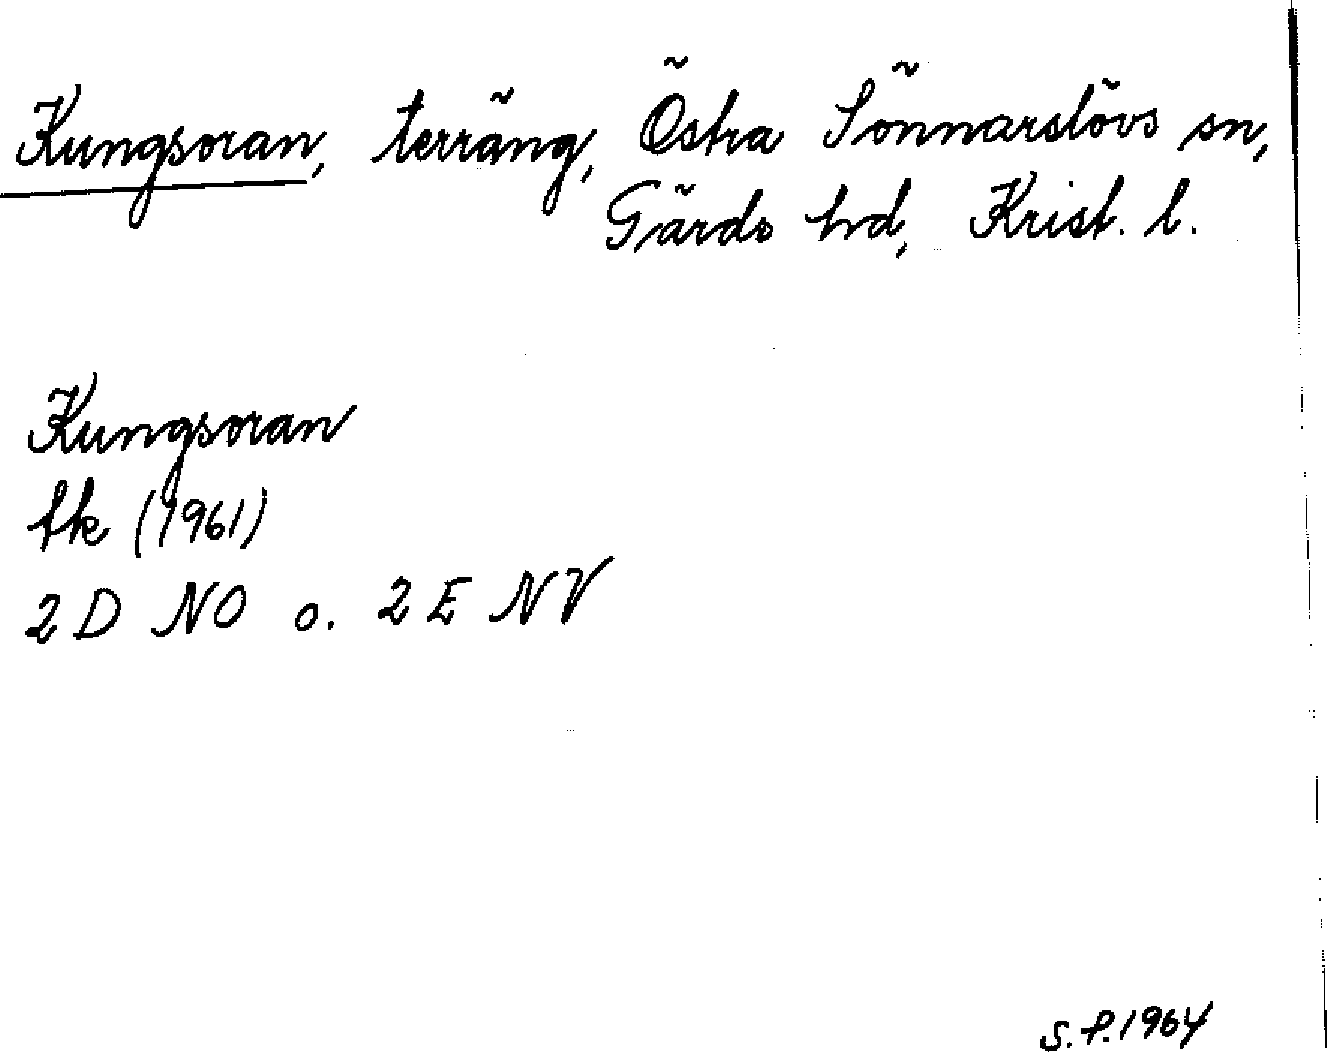 Kungsoran, terräng, Östra Sönnarslövs sn,
Gärds hd, Krist. l.
Kungsoran
tk (1961)
2 D NO o. 2 E NV
S.P. 1964